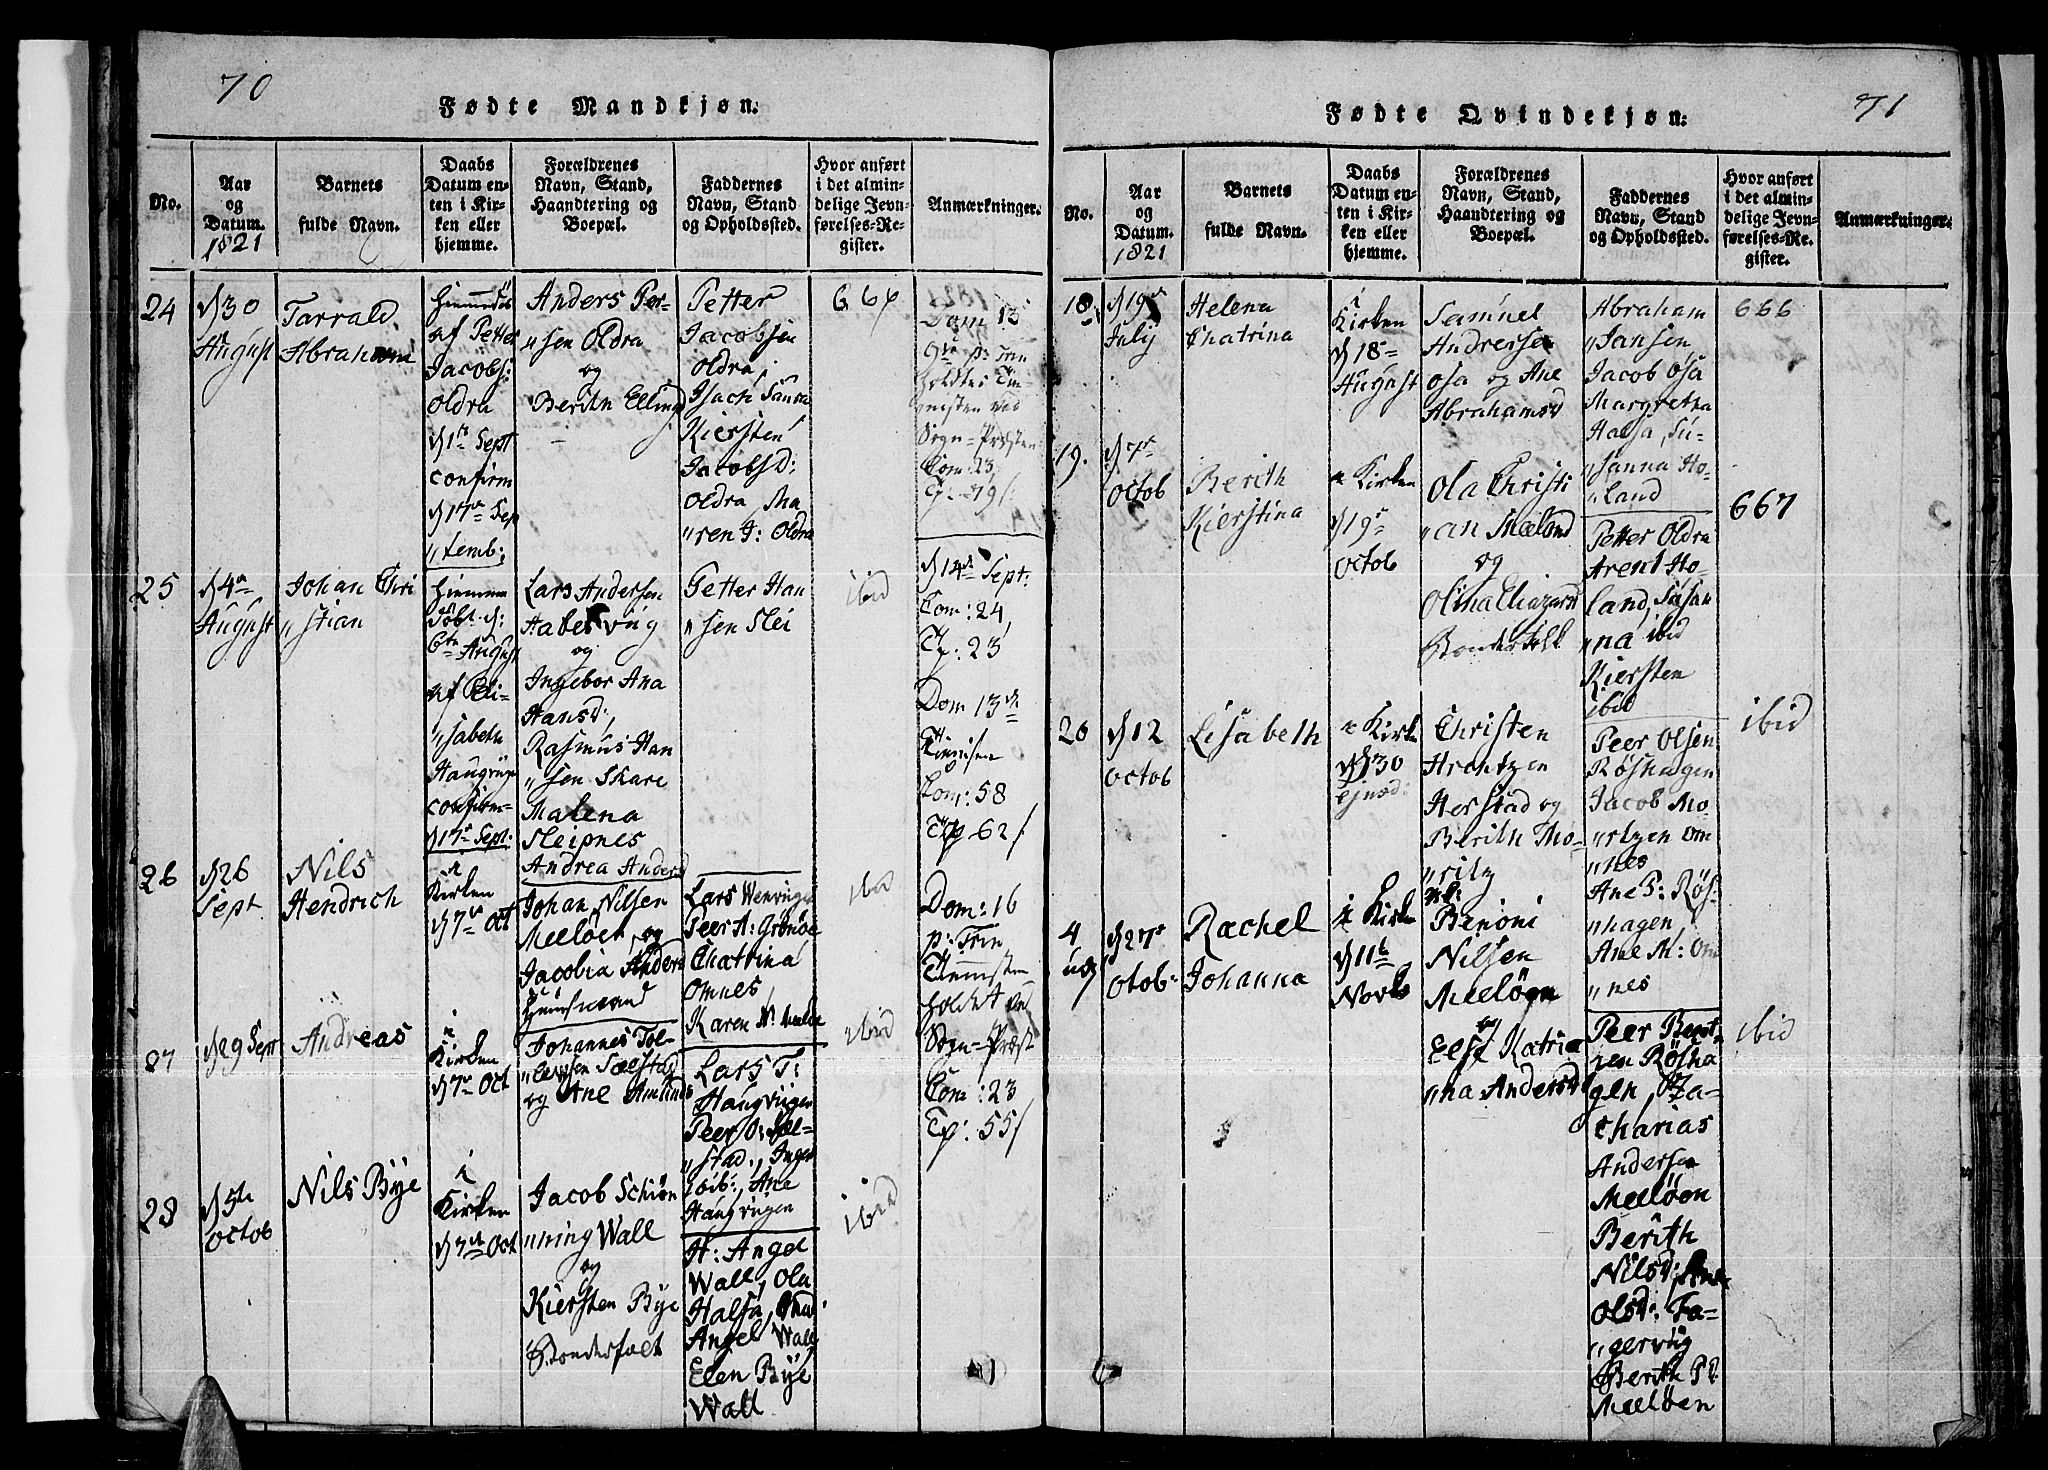 70
Fødte Mandkjøn:
No.
Aar
og
Datum.
1821
Barnets
fulde Navn.
Daabs
Datum en-
ten i Kir-
ken eller
hjemme.
Forældrenes
Navn, Stand,
Haandtering og
Boepæl.
Faddernes
Navn, Stand
og Opholdssted.
Hvor anført
i det almin-
delige Jevn-
førelses-Re-
gister.
Anmærkninger.
24
d 30
August
Tarrald
Abraham
Hiemmedøb
af Petter
Jacobs:
Oldra
d 1te Sept
confirm
d 17de Sep
"temb:
Anders Per-
"sen Oldra
og
Berith Ellings
Petter
Jacobsen
Oldra,
Isach
Kiersten
Jacobsd:
Oldra Ma
"ren J: Oldra
664
Dom 13
p: Trin
holdtes
ved
Sogn-Præsten
Com: 23
Tp: 19/
25
d 4de
August
Johan Chri
"stian
Hiemme
døbt d:
6te August
af Eli-
"sabeth
Haugvigen
confirm-
d 17de Sept:
Lars Andersen
Habervig
og
Ingebor Ana
Hansd:
Rasmus Han
"sen Skare
Malena
Sleipnes
Andrea Andersd
Petter Han
"sen Slei
ibid
d 14de Sept:
Com: 24
Tp: 23
Dom 13de
Com: 58
Tp 62/
26
d 26
Sept
Nils
Hendrich
i
Kirken
d 7de Oct
Johan Nilsen
Meeløen og
Jacobia Anders
Huusmand
Lars Wenvigen
Peer A: Grønøe
Chatrina
Omnes,
Karen
ibid
Dom: 16
p: Trin
holdt ved
Sogn-Præst
Com: 23
Tp: 55/
27
d 29 Sept
Andreas
i
Kirken
d 7de Oct
Johannes Tol-
"lefsen Sælstad
og Ane Amunds
Lars T:
Haugvigen
Peer O: Sæl-
"stad, Inger
ibid:, Ane
Haugvigen
ibid
28
d 5te
octob
Nils Bye
i
Kirken
d 7de Oct
Jacob Schiøn
"ning Wall
og
Kiersten Bye
Bonderfolk
H: Angel
Wall, Ola
Halsa,
Angel Wall
Elen Bye
Wall
ibid
71
Fødte Qvindekjøn:
No.
Aar
og
Datum.
1821
Barnets
fulde Navn.
Daabs
Datum en-
ten i Kir-
ken eller
hjemme.
Forældrenes
Navn, Stand,
Haandtering og
Boepæl.
Faddernes
Navn, Stand
og Opholdssted.
Hvor anført
i det almin-
delige Jevn-
førelses-Re-
gister.
Anmærkninger.
18
d 19de
July
Helena
Chatrina
i
Kirken
d 18de
August
Samuel
Andersen
Osa og Ane
Abrahamsd
Abraham
"Jansen
Jacob Osa
Margretha
Halsa, Su-
"sanna Ho-
"land
666
19.
d 7de
octob
Berith
Kierstina
i Kirken
d 19de
octob
Ola Christi
"an Mæland
og
Olina Eliazersd
Bonderfolk
Petter Oldra
Arent Ho-
land, Susan
"na ibid
Kiersten
ibid
667
20
d 12
octob
Lisabeth
i Kirken
d 30
Ejusd:
Christen
Arentzen
Herstad og
Berith Mo-
"ritz
Peer Olsen
Røshagen
Jacob Mo-
"rtzen Om
"nes
Ane P: Røs-
"hagen
Ane M: Om
"nes
ibid
4
d 27de
Otob:
Rachel
Johanna
i Kirken
d 11te
Novb
Benoni
Nilsen
Meeløen
og
Else Katri
"na Andersd
Peer Bent-
zen Røsha
gen, Za-
charias
Andersen
Meeløen
Berith
Nilsd: Ane
Olsd: Fa-
"gervig
Berith P:
Meeløen
ibid